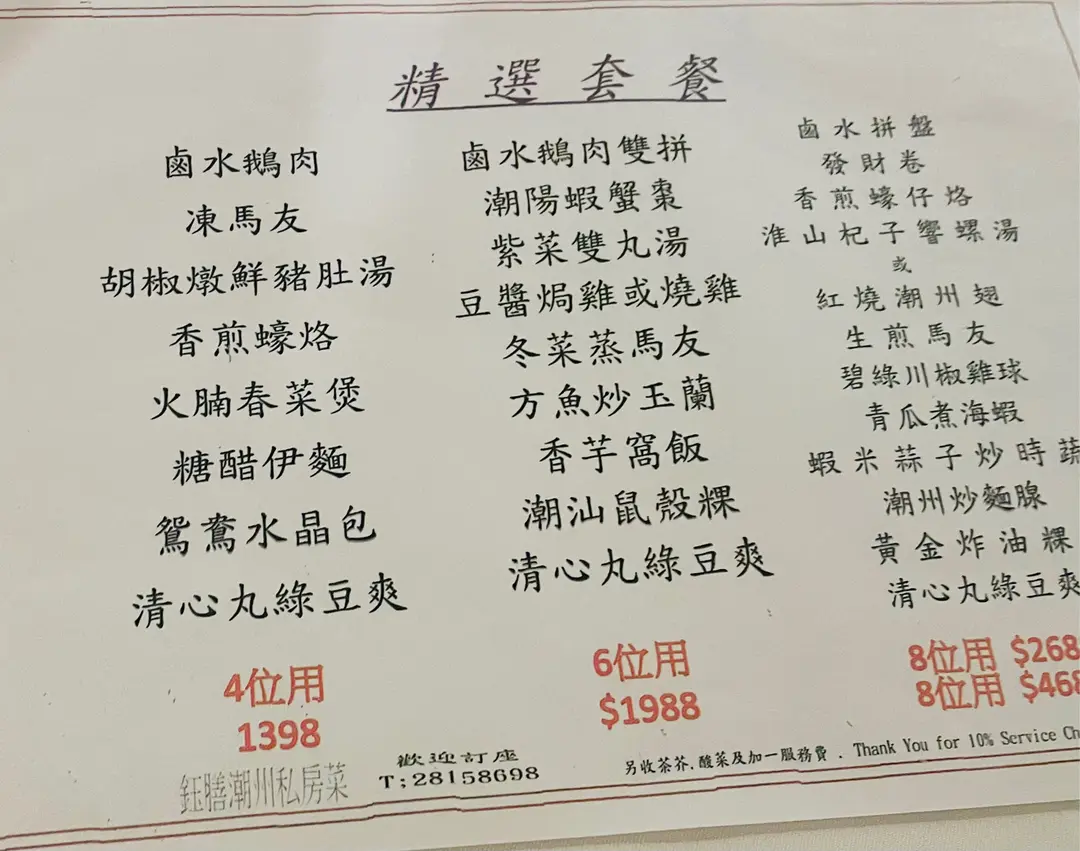 精選套餐
鹵水鵝肉
凍馬友
胡椒燉鮮豬肚湯
香煎蠔烙
火腩春菜煲
糖醋伊麵
鴛鴦水晶包
清心丸綠豆爽
4位用
1398
鹵水鵝肉雙拼
潮陽蝦蟹棗
紫菜雙丸湯
豆醬焗雞或燒雞
冬菜蒸馬友
方魚炒玉蘭
香芋窩飯
潮汕鼠殼粿
清心丸綠豆爽
6位用
$1988
鹵水拼盤
發財卷
香煎蠔仔烙
淮山杞子響螺湯
或
紅燒潮州翅
生煎馬友
碧綠川椒雞球
青瓜煮海蝦
蝦米蒜子炒時蔬
潮州炒麵腺
黃金炸油粿
清心丸綠豆爽
8位用 $268
8位用 $468
鈺膳潮州私房菜
歡迎訂座
T;28158698
另收茶芥.酸菜及加一服務費 . Thank You for 10% Service Ch